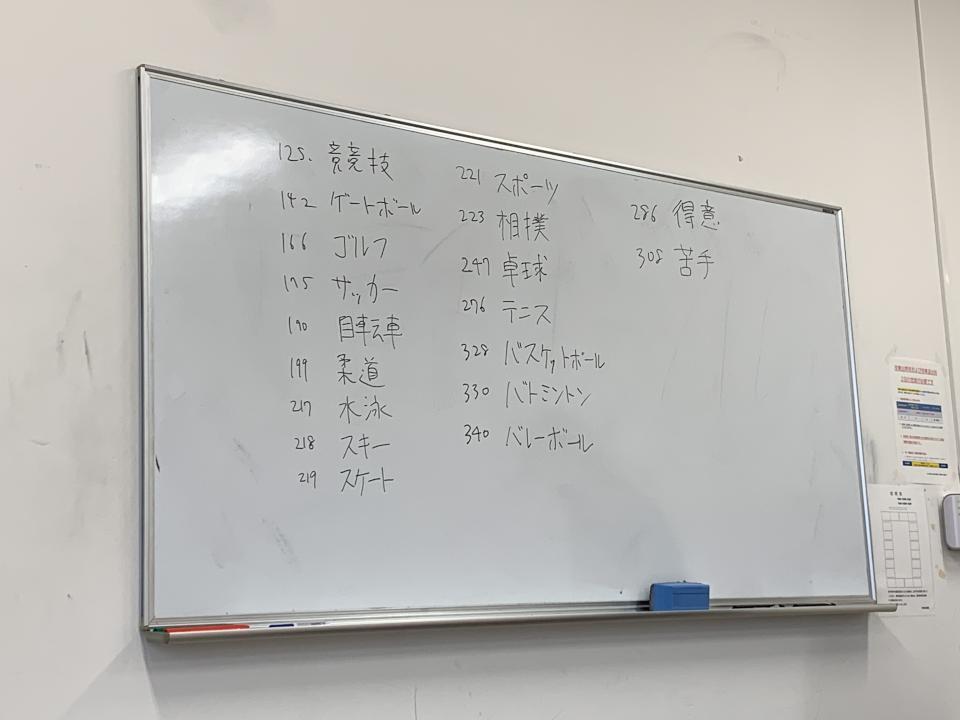 125. 競技
142 ゲートボール
166 ゴルフ
175 サッカー
190 自転車
199 柔道
217 水泳
218 スキー
219 スケート
221 スポーツ
223 相撲
247 卓球
276 テニス
328 バスケットボール
330 バトミントン
340 バレーボール
286 得意
308 苦手